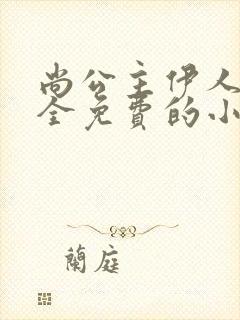 尚公主伊人
全免费的小
蘭庭